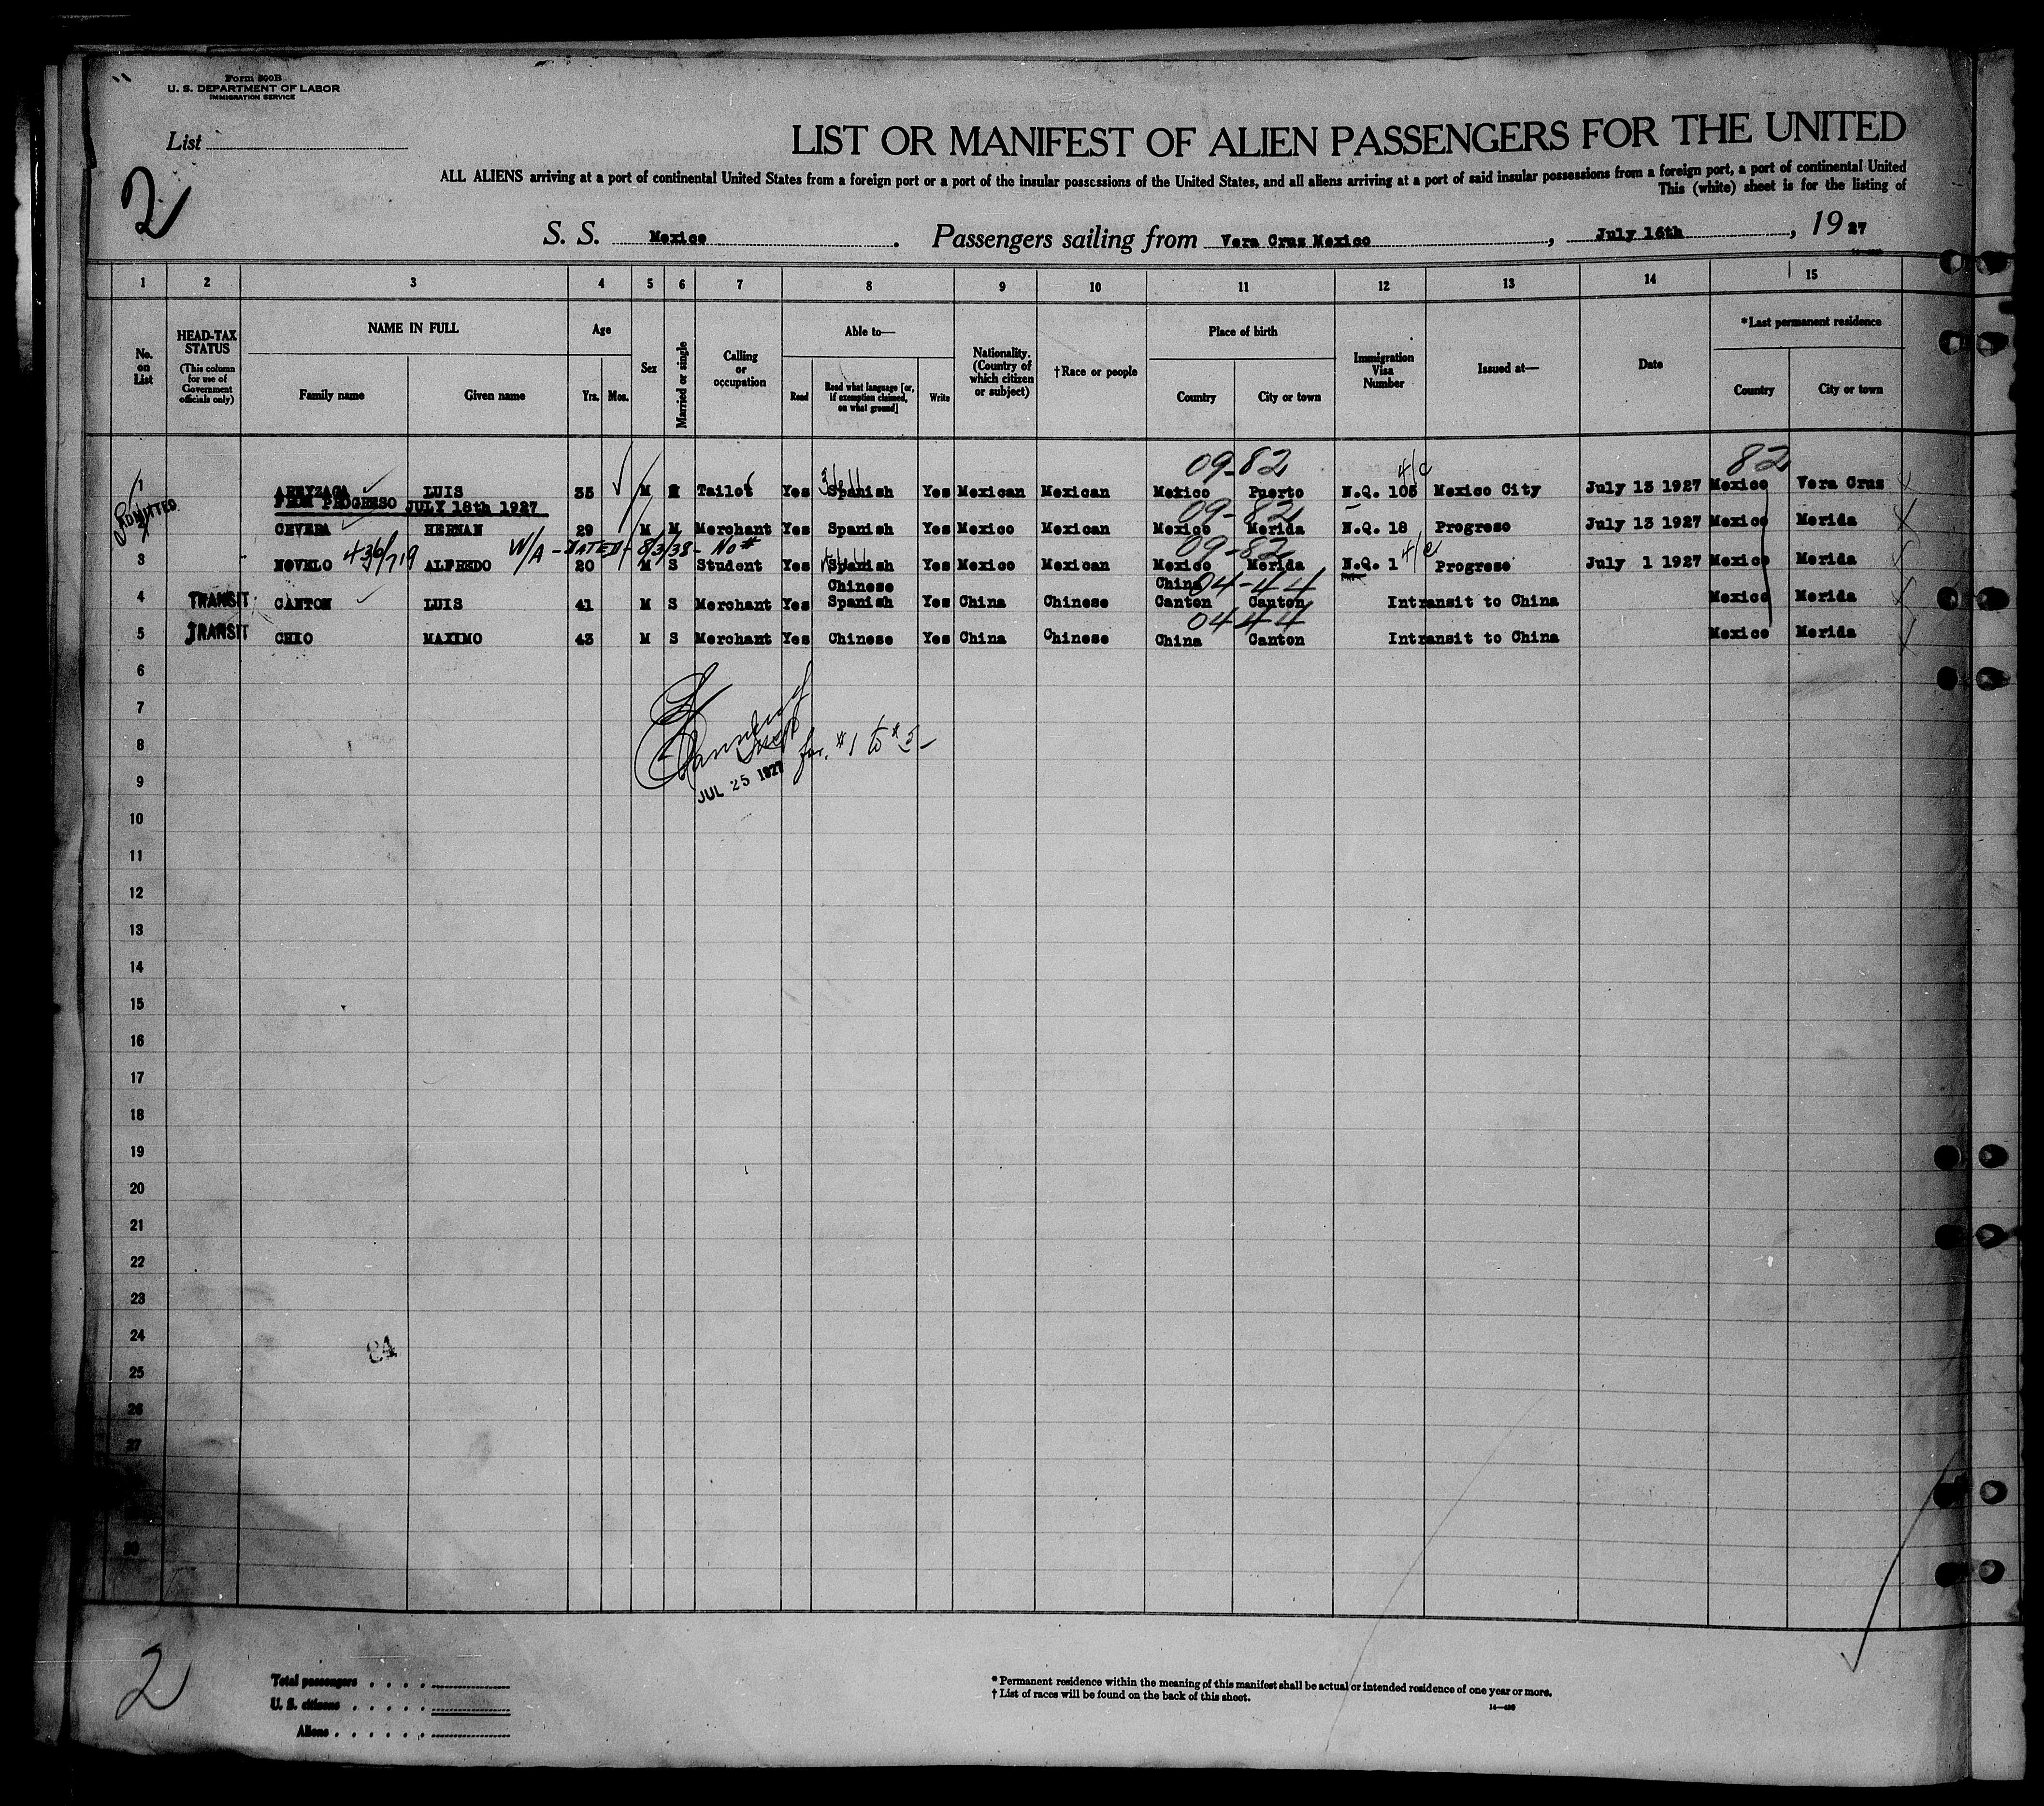 Form 500B
U. S. DEPARTMENT OF LABOR
IMMIGRATION SERVICE
List
2
LIST OR MANIFEST OF ALIEN PASSENGERS FOR THE UNITED
ALL ALIENS arriving at a port of continental United States from a foreign port or a port of the insular possessions of the United States, and all aliens arriving at a port of said insular possessions from a foreign port, a port of continental United
This (white) sheet is for the listing of
S. S. Mexico . Passengers sailing from Vera Cruz Mexico , July 16th , 19 27
1 2 3 4 5 6 7 8 9 10 11 12 13 14 15
No. on List
HEAD-TAX STATUS
(This column for use of Government officials only)
NAME IN FULL
Family name Given name
Age
Yrs. Mos.
Sex
Married or single
Calling or occupation
Able to—
Read
Read what language [or, if exemption claimed, on what ground]
Write
Nationality. (Country of which citizen or subject)
†Race or people
Place of birth
Country City or town
Immigration Visa Number
Issued at—
Date
*Last permanent residence
Country City or town
09-82 4/c 82
1 LUIS 35 M Tailor Yes Spanish Yes Mexican Mexican Mexico Puerto N.Q. 105 Mexico City July 13 1927 Mexico Vera Cruz
ADMITTED
FROM PROGRESO JULY 18th 1927
09-82
CEVERA HERNAN 29 M M Merchant Yes Spanish Yes Mexico Mexican Mexico Merida N.Q. 18 Progreso July 13 1927 Mexico Merida
W/A - DATED - 8/3/38 - No# 09-82 4/c
3 NOVELO 436/719 ALFREDO 20 M S Student Yes Spanish Yes Mexico Mexican Mexico Merida N.Q. 1 Progreso July 1 1927 Mexico Merida
Chinese China 04-44
4 TRANSIT CANTON LUIS 41 M S Merchant Yes Spanish Yes China Chinese Canton Canton Intransit to China Mexico Merida
04-44
5 TRANSIT CHIO MAXIMO 43 M S Merchant Yes Chinese Yes China Chinese China Canton Intransit to China Mexico Merida
6
7
8
for #1 to #5
JUL 25 1927
9
10
11
12
13
14
15
16
17
18
19
20
21
22
23
24
84
25
26
27
30
2
Total passengers
U. S. citizens
Aliens
* Permanent residence within the meaning of this manifest shall be actual or intended residence of one year or more.
† List of races will be found on the back of this sheet.